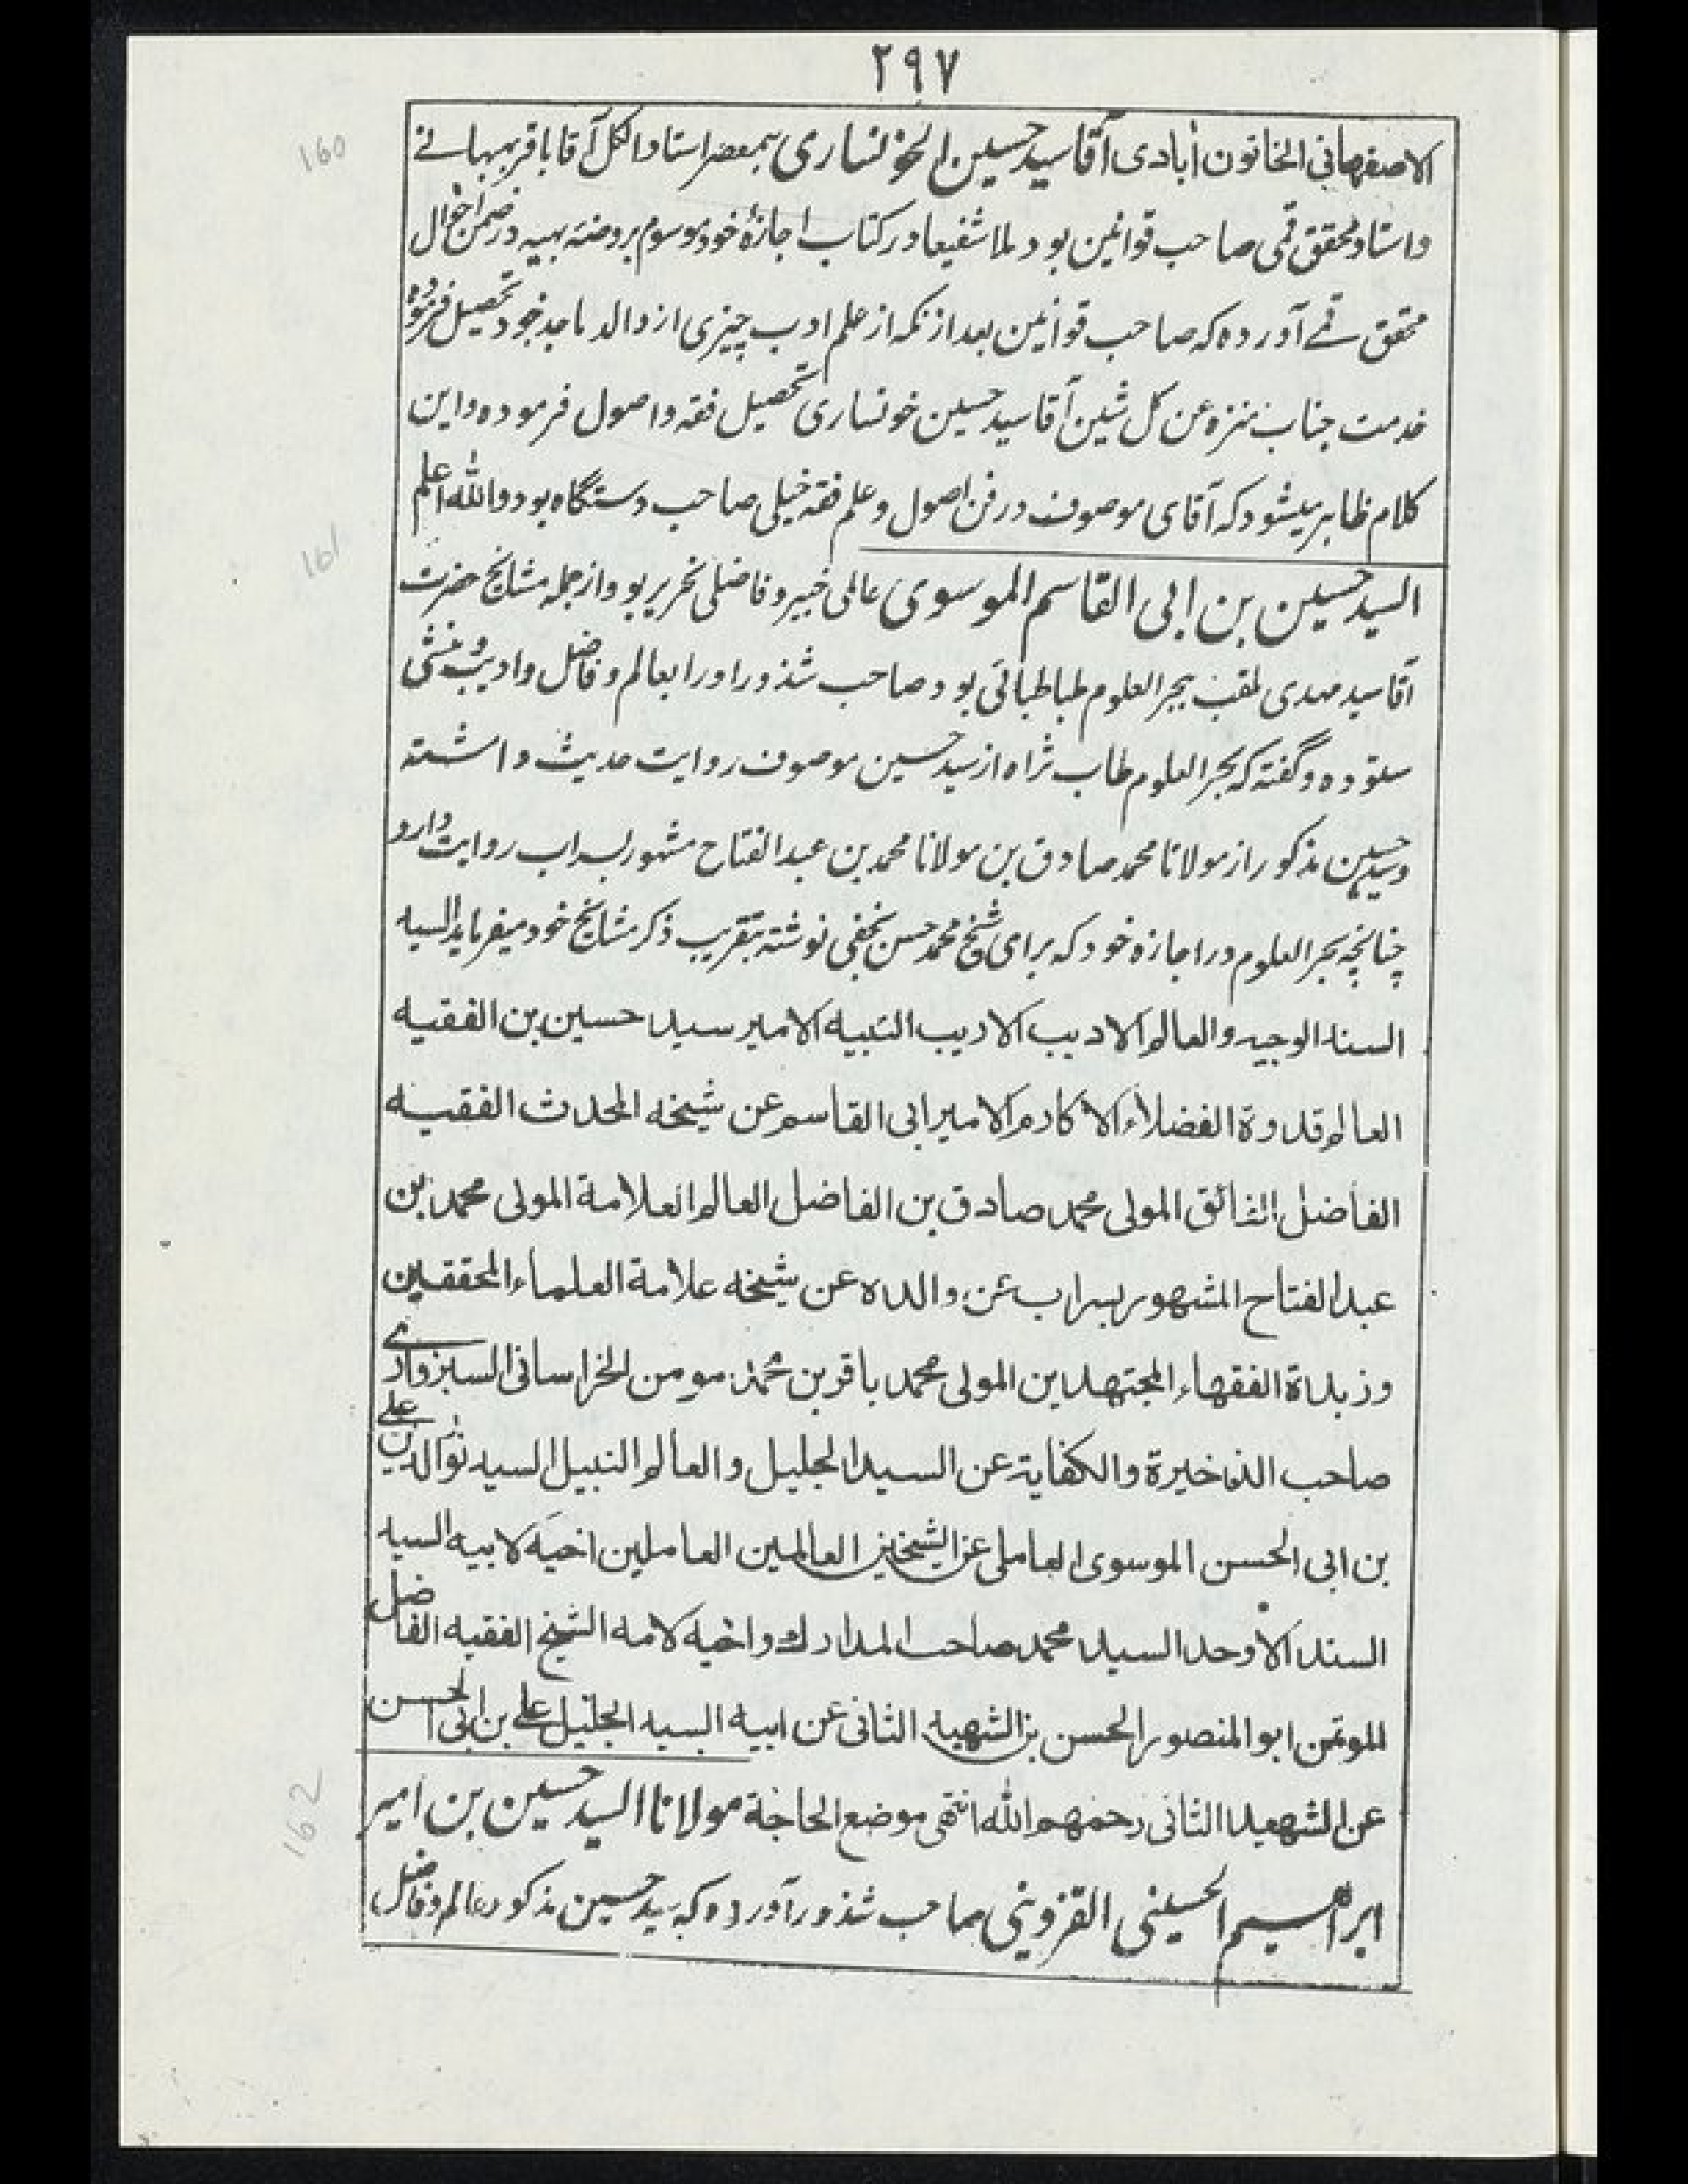 ۲۹۷
160
الاصفهانی الخاتون آبادی آقا سید حسین الخونساری ہمعصر استاد الکل آقا باقر بہبہانے
و استاد محقق قمی صاحب قوانین بود ملا شفیعا در کتاب اجازۂ خود موسوم بروضہ بہیہ در ضمن احوال
محقق قمے آورده کہ صاحب قوانین بعد ازنکہ از علم ادب چیزی از والد ماجد خود تحصیل فرموده
خدمت جناب منزه عن کل شین آقا سید حسین خونساری تحصیل فقہ و اصول فرموده و این
کلام ظاہر میشود کہ آقای موصوف در فن اصول و علم فقہ خیلی صاحب دستگاه بود واللہ اعلم
161
السید حسین بن ابی القاسم الموسوی عالمی خبیر و فاضلی نحریر بود از جملہ مشایخ حضرت
آقا سید مہدی ملقب ببحر العلوم طباطبائی بود صاحب شذور او را بعالم و فاضل و ادیب و منشی
ستوده و گفتہ کہ بحر العلوم طاب ثراه از سید حسین موصوف روایت حدیث داشتہ
و سید حسین مذکور از مولانا محمد صادق بن مولانا محمد بن عبد الفتاح مشہور بسراب روایت دارد
چنانچہ بحر العلوم در اجازه خود کہ برای شیخ محمد حسن نجفی نوشتہ بتقریب ذکر مشایخ خود میفرماید السید
السند الوجیه والعالم الادیب الاریب النبیه الامیر سید حسین بن الفقیه
العالم قدوة الفضلاء الاکارم الامیر ابی القاسم عن شیخه المحدث الفقیه
الفاضل الفائق المولی محمد صادق بن الفاضل العالم العلامة المولی محمد بن
عبد الفتاح المشهور بسراب عن والده عن شیخه علامة العلماء المحققین
وزبدة الفقهاء المجتهدین المولی محمد باقر بن محمد مومن الخراسانی السبزواری
صاحب الذخیرة والکفایة عن السید الجلیل والعالم النبیل السید نور الدین علی
بن ابی الحسن الموسوی العاملی عن الشیخین العالمین العاملین اخیه لابیه السید
السند الاوحد السید محمد صاحب المدارک واخیه لامه الشیخ الفقیه الفاضل
الموتمن ابو المنصور الحسن بن الشهید الثانی عن ابیه السید الجلیل علی بن ابی الحسن
162
عن الشهید الثانی رحمهم الله انتهی موضع الحاجة مولانا السید حسین بن امیر
ابراهیم الحسینی القزوینی صاحب شذور آورده کہ سید حسین مذکور عالم و فاضل